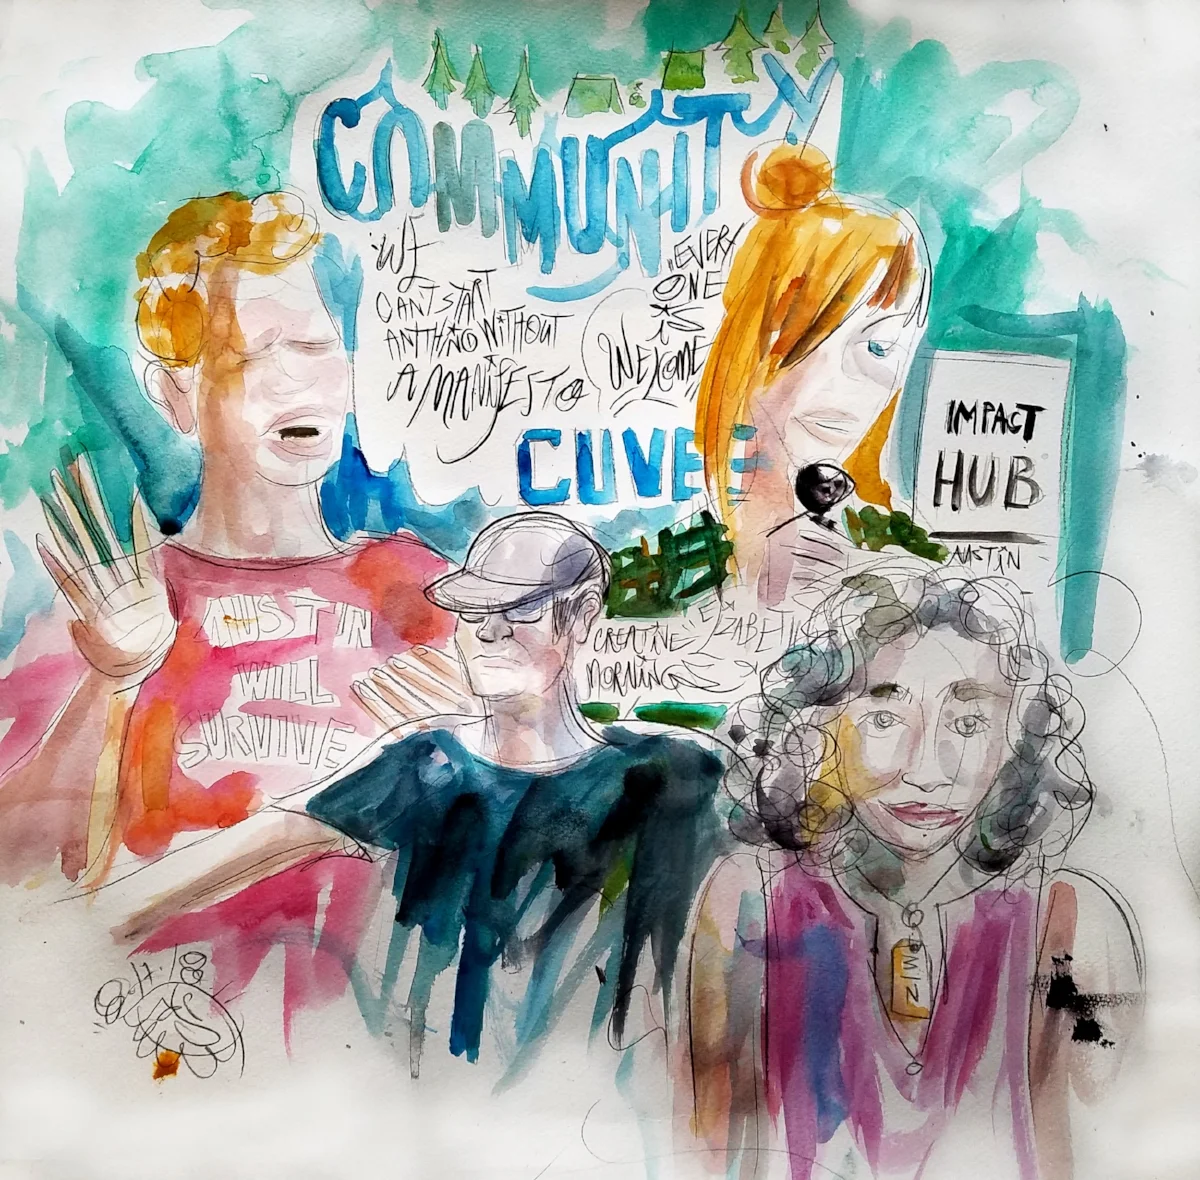 COMMUNITY
"WE
CAN'T START
ANYTHING WITHOUT
A MANIFESTO
"EVERY
ONE
IS
WELCOME"
CUVEE
IMPACT
HUB
AUSTIN
AUSTIN
WILL
SURVIVE
CREATIVE
MORNINGS
ELIZABETH